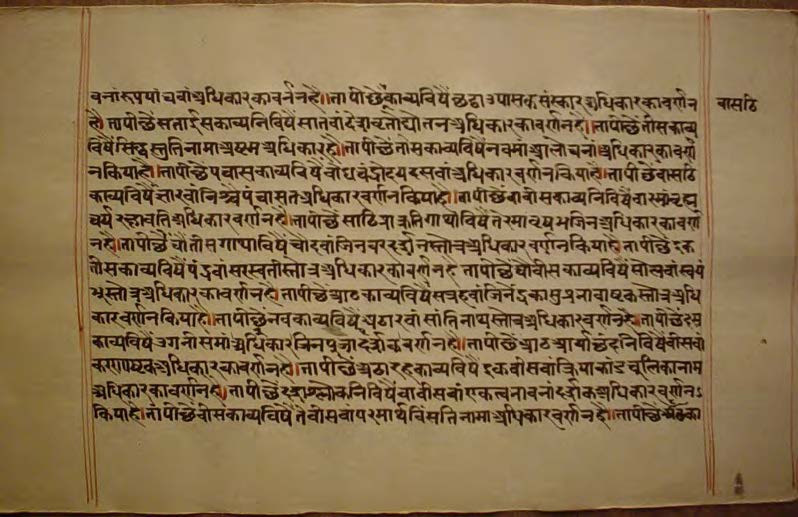 वनांरूपपांचवांअधिकारकावर्ननहै॥तापीछैंकाव्यविषैंछठाउपासकसंस्कारअधिकारकावर्णन वासठि
है॥तापीछैंसताईसकाव्यनिविषैंसातवांदेशव्रतोद्योतनअधिकारकावर्णनहै॥तापीछैंवीसकाव्य
विषैंसिद्धस्तुतिनामाअष्टमअधिकारहै॥तापीछैंतीसकाव्यविषैंनवमांआलोचनांअधिकारकावर्ण
नकियाहै॥तापीछैंपचासकाव्यविषैंवोधचंद्रोदयदसवांअधिकारकावर्णनकियाहै॥तापीछैंवासठि
काव्यविषैंग्यारवांनिश्चैपंचासतअधिकारवर्णनकियाहै॥तापीछैंवावीसकाव्यनिविषैंवारमांव्रह्म
चर्यरक्षावर्तिअधिकारवर्णनहै॥तापीछैंसाठिप्राकृतिगाथाविषैंतेरमाऋषभजिनअधिकारकावर्ण
नहै॥तापीछैंचौतीसगाथाविषैंचौदवांजिनवरदर्शनस्तोत्रअधिकारवर्णनकियाहै॥तापीछैंइक
तीसकाव्यविषैंपंद्रवांसरस्वतीस्तोत्रअधिकारकावर्णनहै तापीछैंचौवीसकाव्यविषैंसोलवांस्वयं
भूस्तोत्रअधिकारकावर्णनहै॥तापीछैंआठकाव्यविषैंसत्रहवांजिनेंद्रकासुप्रभाताष्टकस्तोत्रअधि
कारवर्णनकियाहै॥तापीछैंनवकाव्यविषैंअठारवांसांतिनाथस्तोत्रअधिकारवर्णनहै॥तापीछैंदस
काव्यविषैंउगनीसमांअधिकारजिनपूजाकावर्णनहै॥तापीछैंआठआर्याछंदनिविषैंवीसवां
करुणाष्टकअधिकारकावर्णनहै॥तापीछैंअठारहकाव्यविषैंइकवीसवांक्रियाकांडचूलिकानाम
अधिकारकावर्णनहै॥तापीछैंश्लोकनिविषैंवावीसवांएकत्वभावनांदशकअधिकारवर्णन
कियाहै॥तापीछैंवीसकाव्यविषैंतेवीसवांपरमार्थविंसतिनामाअधिकारवर्णनहै॥तापीछैंआठका